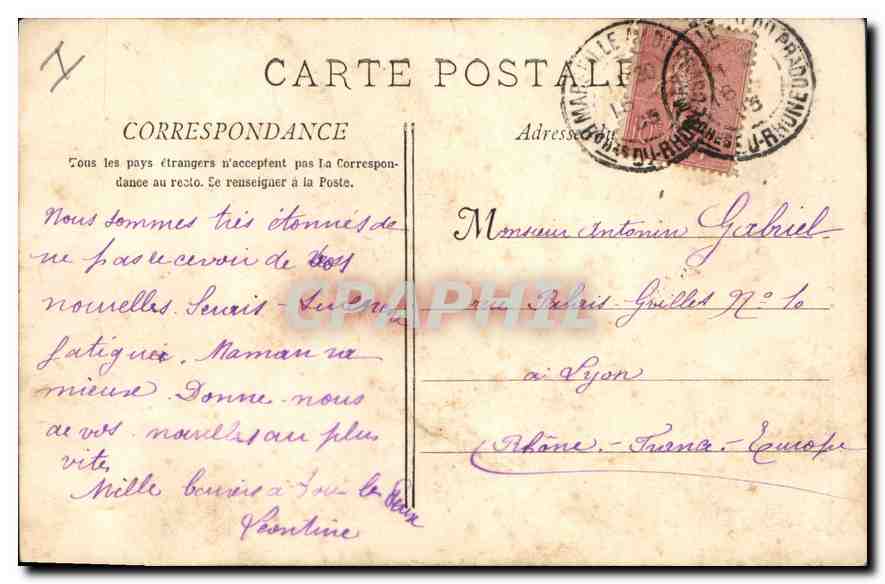 CARTE POSTALE
CORRESPONDANCE
Tous les pays étrangers n'acceptent pas la Correspon-
dance au recto. Se renseigner à la Poste.
Nous sommes très étonnés de
ne pas recevoir de vos
nouvelles. Serais-tu
fatiguée. Maman va
mieux. Donne-nous
de vos nouvelles au plus
vite
Mille baisers à tous les deux
Léontine
Adresse
Monsieur Antonin Gabriel
rue Palais-Grillet No 10
à Lyon
Rhône.-France.-Europe
CPAPHIL
MARSEILLE
Bches DU-RHONE
DU PRADO
DU-RHONE